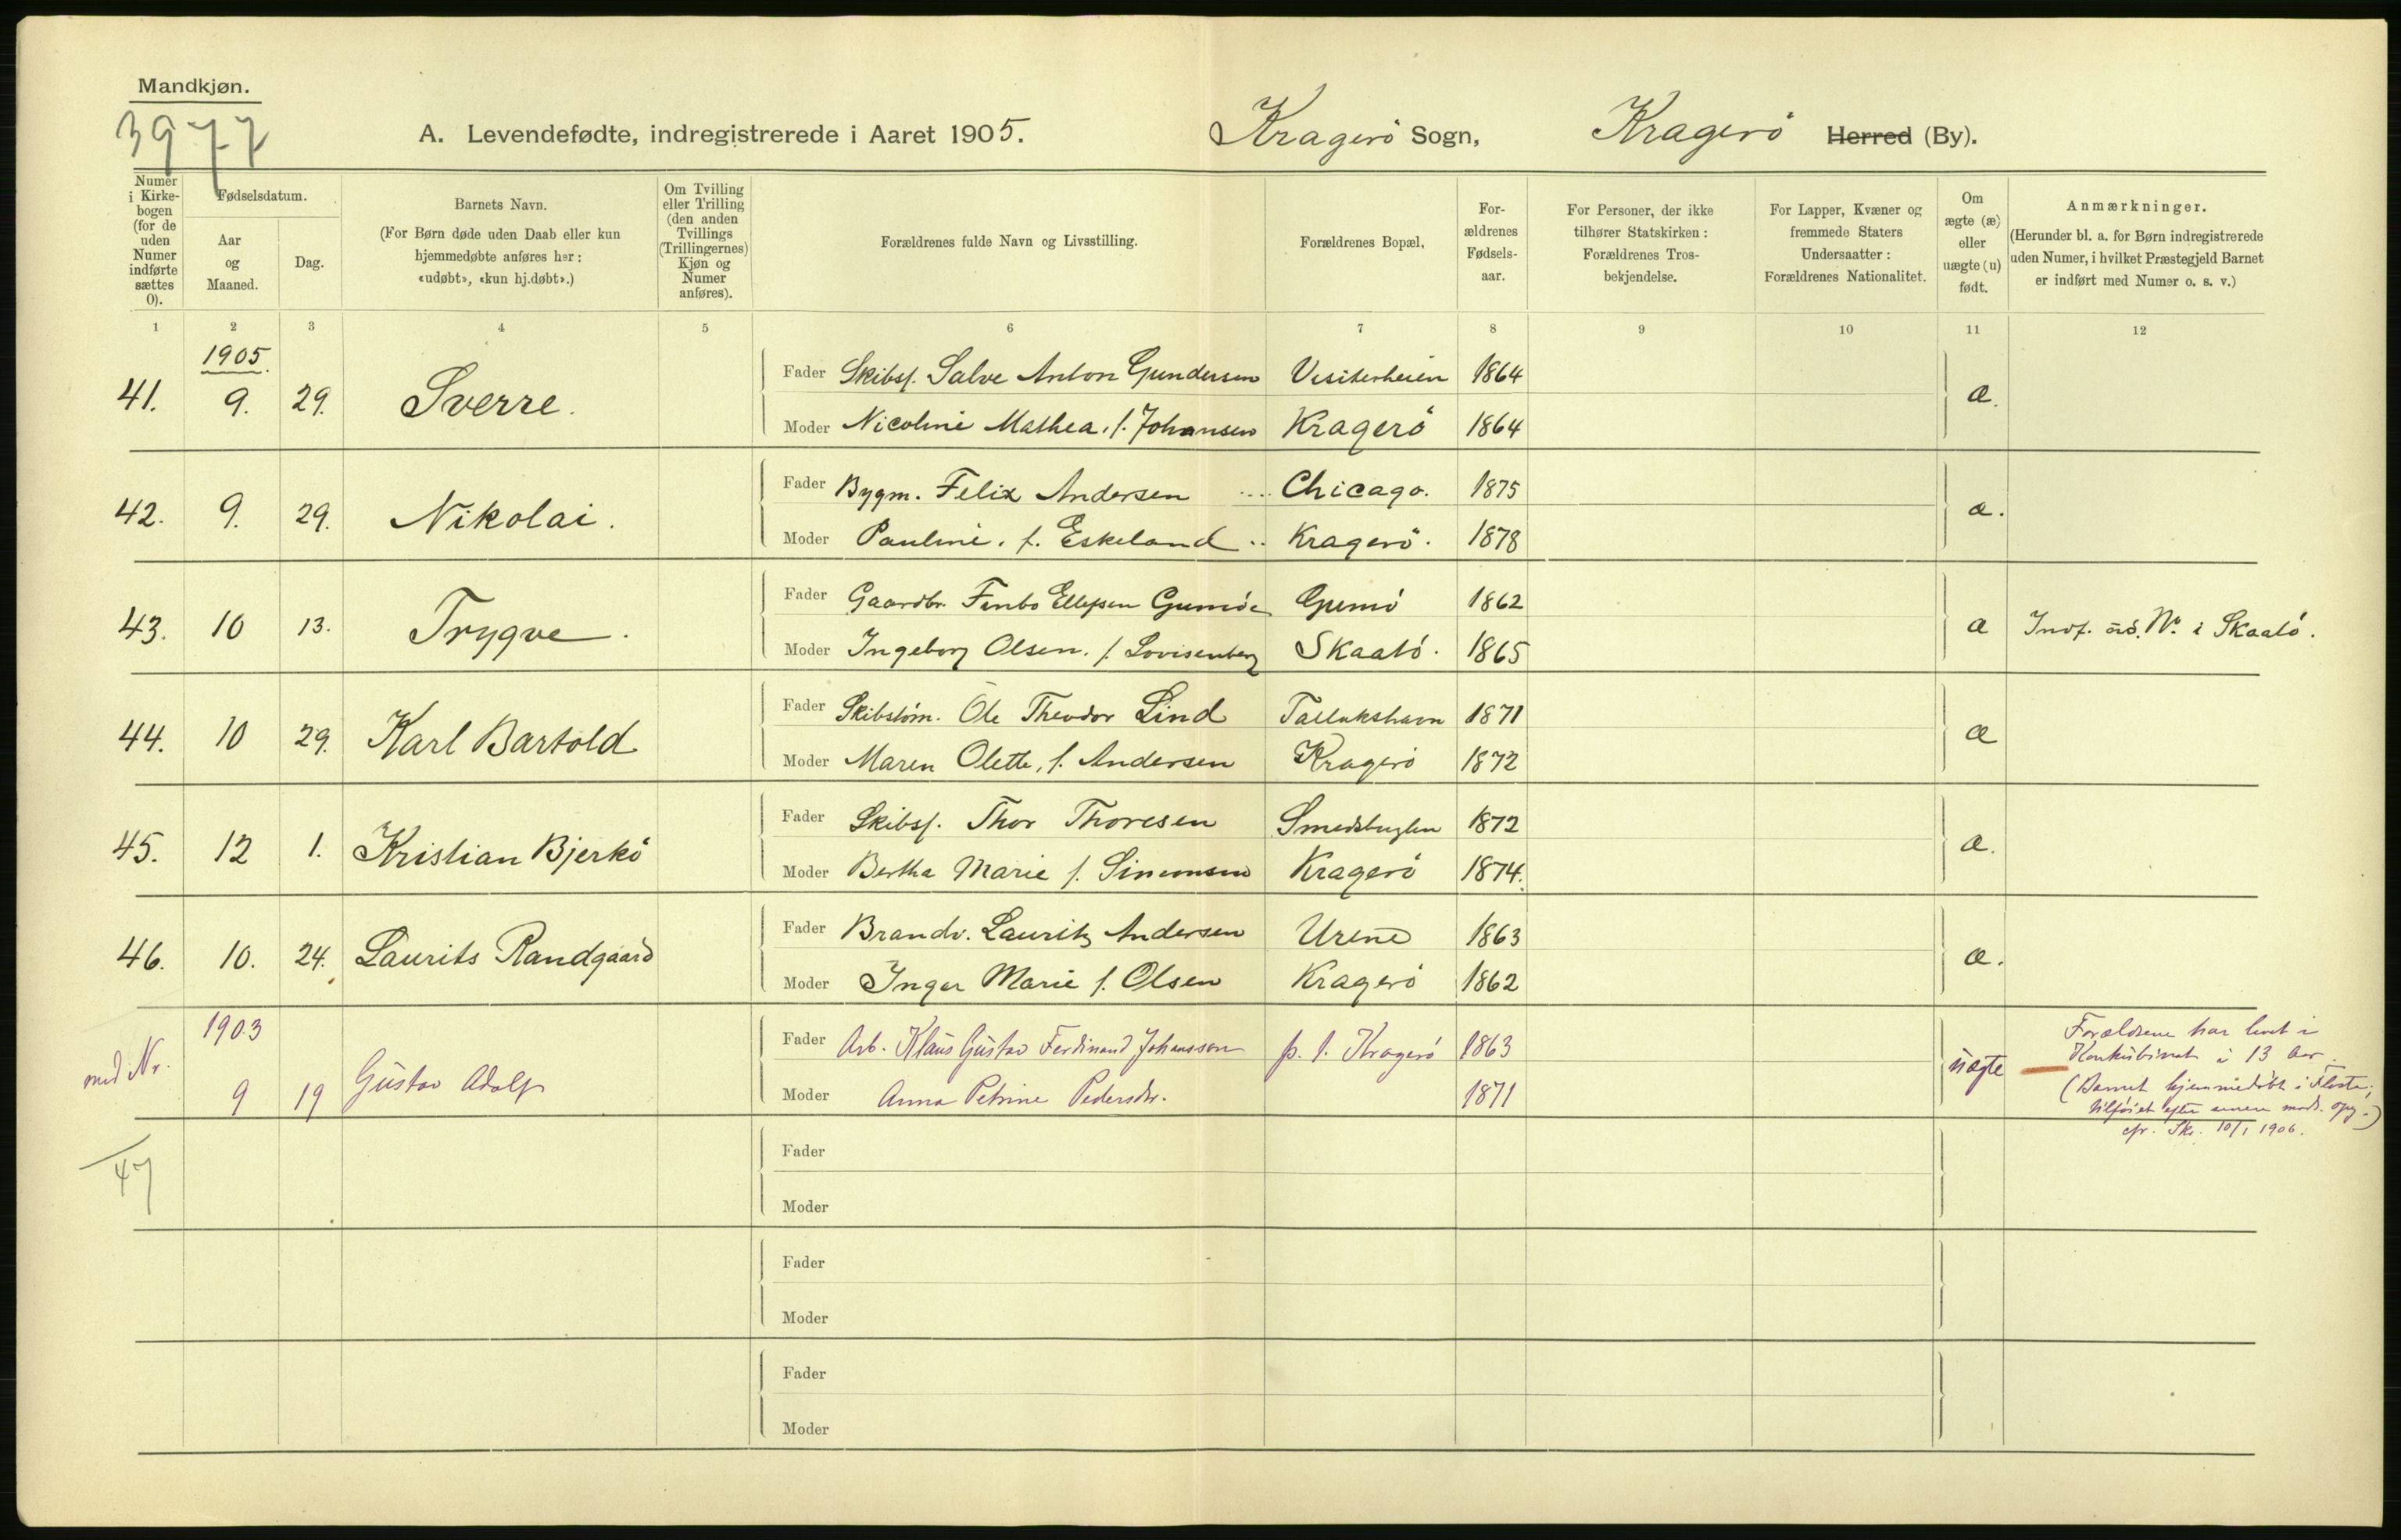 Mandkjøn.
3977
A. Levendefødte, indregistrerede i Aaret 1905. Kragerö Sogn, Kragerö Herred (By).
Numer i Kirke-bogen (for de uden Numer indførte sættes 0).
Fødselsdatum.
Aar og Maaned.
Dag.
Barnets Navn.
(For Børn døde uden Daab eller kun hjemmedøbte anføres her: «udøbt», «kun hj.døbt».)
Om Tvilling eller Trilling (den anden Tvillings (Trillingernes) Kjøn og Numer anføres).
Forældrenes fulde Navn og Livsstilling.
Forældrenes Bopæl,
For-ældrenes Fødsels-aar.
For Personer, der ikke tilhører Statskirken: Forældrenes Tros-bekjendelse.
For Lapper, Kvæner og fremmede Staters Undersaatter: Forældrenes Nationalitet.
Om ægte (æ) eller uægte (u) født.
Anmærkninger.
(Herunder bl. a. for Børn indregistrerede uden Numer, i hvilket Præstegjeld Barnet er indført med Numer o. s. v.)
1 2 3 4 5 6 7 8 9 10 11 12
1905.
41. 9. 29. Sverre. Fader Skibsf. Salve Anton Gundersen Visiterheien 1864 æ.
Moder Nicoline Mathea, f. Johansen Kragerö 1864
42. 9. 29. Nikolai. Fader Bygm. Felix Andersen Chicago. 1875 æ.
Moder Pauline, f. Eskeland Kragerö. 1878
43. 10 13. Trygve. Fader Gaardbr. Ellefsen Gumöe Gumö 1862 æ Indf. N. i Skaatö.
Moder Ingeborg Olsen, f. Lovisenberg Skaatö. 1865
44. 10 29. Karl Bartold Fader Skibstöm. Ole Theodor Lind Tallakshavn 1871 æ
Moder Maren Olette, f. Andersen Kragerö 1872
45. 12 1. Kristian Bjerkö Fader Skibsf. Thor Thoresen Smedsbugten 1872 æ.
Moder Bertha Marie f. Simonsen Kragerö 1874.
46. 10. 24. Laurits Randgaard Fader Brandv. Laurits Andersen Urene 1863 æ.
Moder Inger Marie f. Olsen Kragerö 1862
1903
Fader Arb. Klaus Gustav Ferdinand Johansson p. t. Kragerö 1863
Nr. 9 19 Gustav Adolf Moder Anna Petrine Pedersdtr. 1871 uægte
Forældrene har levet i
Konkubinat i 13 Aar.
(Barnet hjemmedöbt i Flosta;
tilföiet efter senere opg.)
cfr. Skr. 10/1 1906.
47
Fader
Moder
Fader
Moder
Fader
Moder